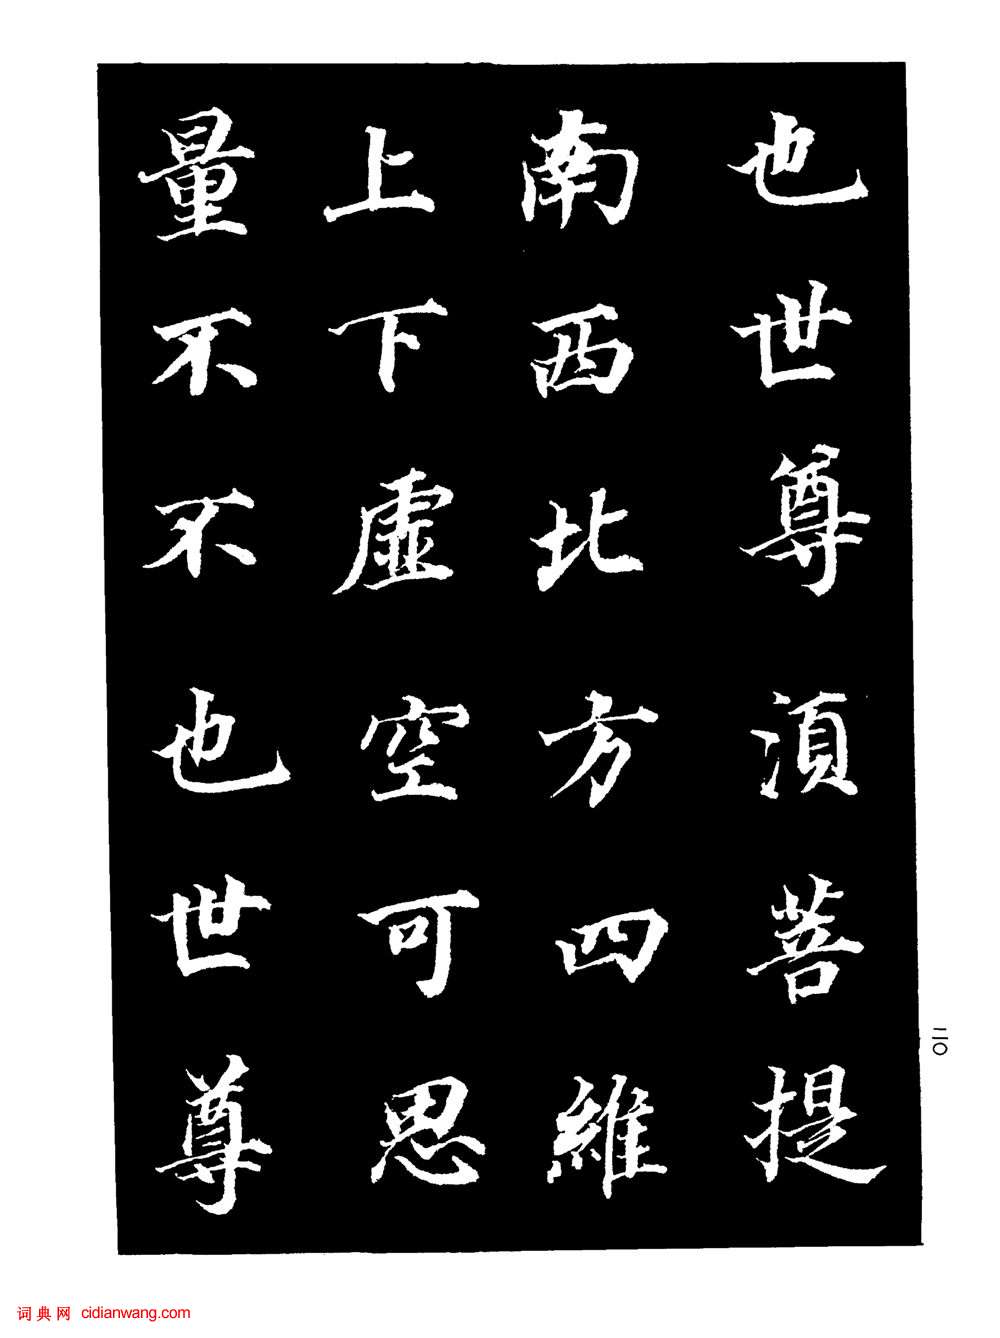 也世尊須菩提
南西北方四維
上下虛空可思
量不不也世尊
二〇
词典网 cidianwang.com